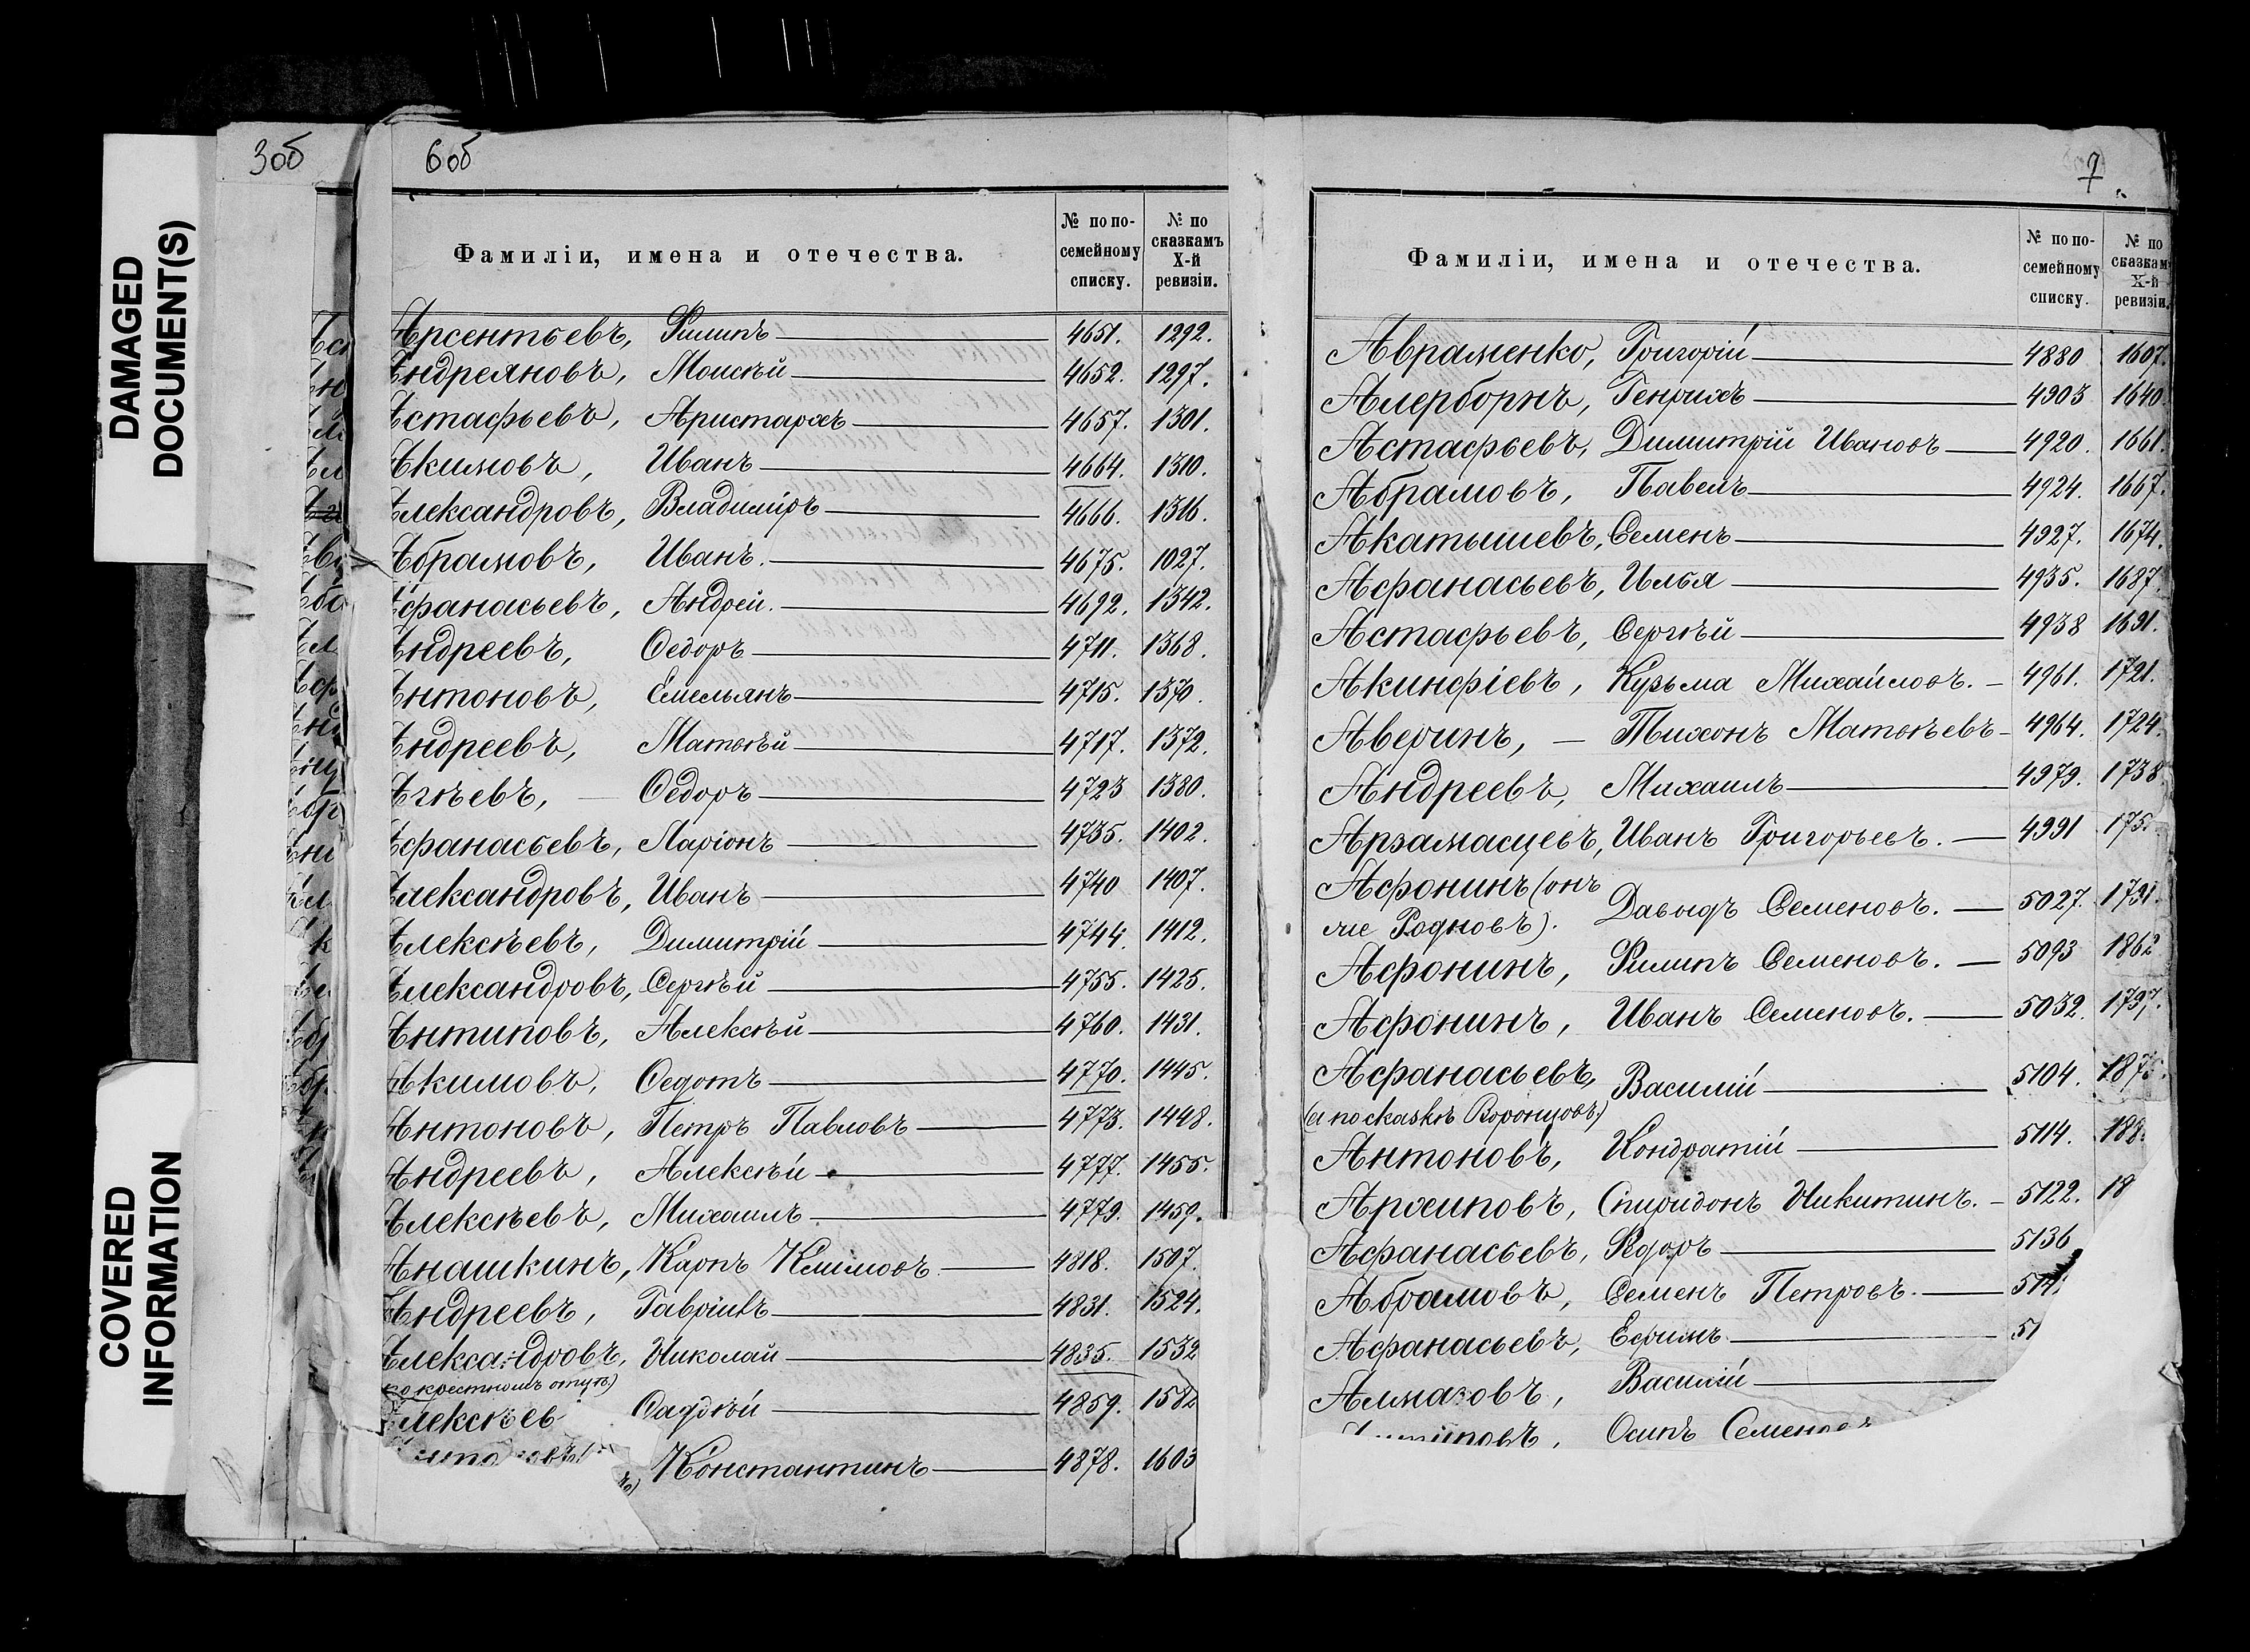 DAMAGED
DOCUMENT(S)
COVERED
INFORMATION
3об
6об
Фамиліи, имена и отечества.
№ по по-
семейному
списку.
№ по
сказкамъ
X-й
ревизіи.
Арсентьевъ, Филипъ 4651. 1292.
Андреяновъ, Моисѣй 4652. 1297.
Астафьевъ, Аристархъ 4657. 1301.
Акимовъ, Иванъ 4664. 1310.
Александровъ, Владиміръ 4666. 1316.
Абрамовъ, Иванъ. 4675. 1027.
Афанасьевъ, Андрей. 4692. 1342.
Андреевъ, Ѳедоръ 4711. 1368.
Антоновъ, Емельянъ 4715. 1370.
Андреевъ, Матвѣй 4717. 1372.
Агѣевъ, — Ѳедоръ 4723 1380.
Афанасьевъ, Ларіонъ 4735. 1402.
Александровъ, Иванъ 4740 1407.
Алексѣевъ, Димитрій 4744. 1412.
Александровъ, Сергѣй 4755. 1425.
Антиповъ, Алексѣй 4760. 1431.
Акимовъ, Ѳедотъ 4770. 1445.
Антоновъ, Петръ Павловъ 4773. 1448.
Андреевъ, Алексѣй 4777. 1455.
Алексѣевъ, Михаилъ 4779. 1459.
Анашкинъ, Карпъ Климовъ 4818. 1507.
Андреевъ, Гавріилъ 4831. 1524.
Александровъ, Николай 4835. 1532
по крестному отцу)
Алексѣев Фаддѣй 4859. 1582
Константинъ 4878. 1603
7
Фамиліи, имена и отечества.
№ по по-
семейному
списку.
№ по
сказкам
X-й
ревизіи.
Авраменко, Григорій 4880 1607.
Алерборнъ, Генрихъ 4903 1640
Астафьевъ, Димитрій Ивановъ 4920. 1661.
Абрамовъ, Павелъ 4924. 1667.
Акатышевъ, Семенъ 4927. 1674.
Афанасьевъ, Илья 4935. 1687.
Астафьевъ, Сергѣй 4938 1691.
Акинфіевъ, Кузьма Михайловъ. — 4961. 1721.
Аверинъ, — Тихонъ Матвѣевъ 4964. 1724.
Андреевъ, Михаилъ 4979. 1738
Арзамасцевъ, Иванъ Григорьевъ. — 4991 175
Афонинъ (онъ
же Родновъ). Давыдъ Семеновъ. — 5027. 1791.
Афонинъ, Филипъ Семеновъ. — 5093 1862
Афонинъ, Иванъ Семеновъ. — 5032. 1797.
Афанасьевъ, Василій 5104. 1875.
(а по сказкѣ Воронцовъ.)
Антоновъ, Кондратій 5114. 188
Архиповъ, Спиридонъ Никитинъ. — 5122. 18
Афанасьевъ, Федоръ 5136
Абрамовъ, Семенъ Петровъ. — 514
Афанасьевъ, Ефимъ 51
Алмазовъ, Василій
Осипъ Семеновъ